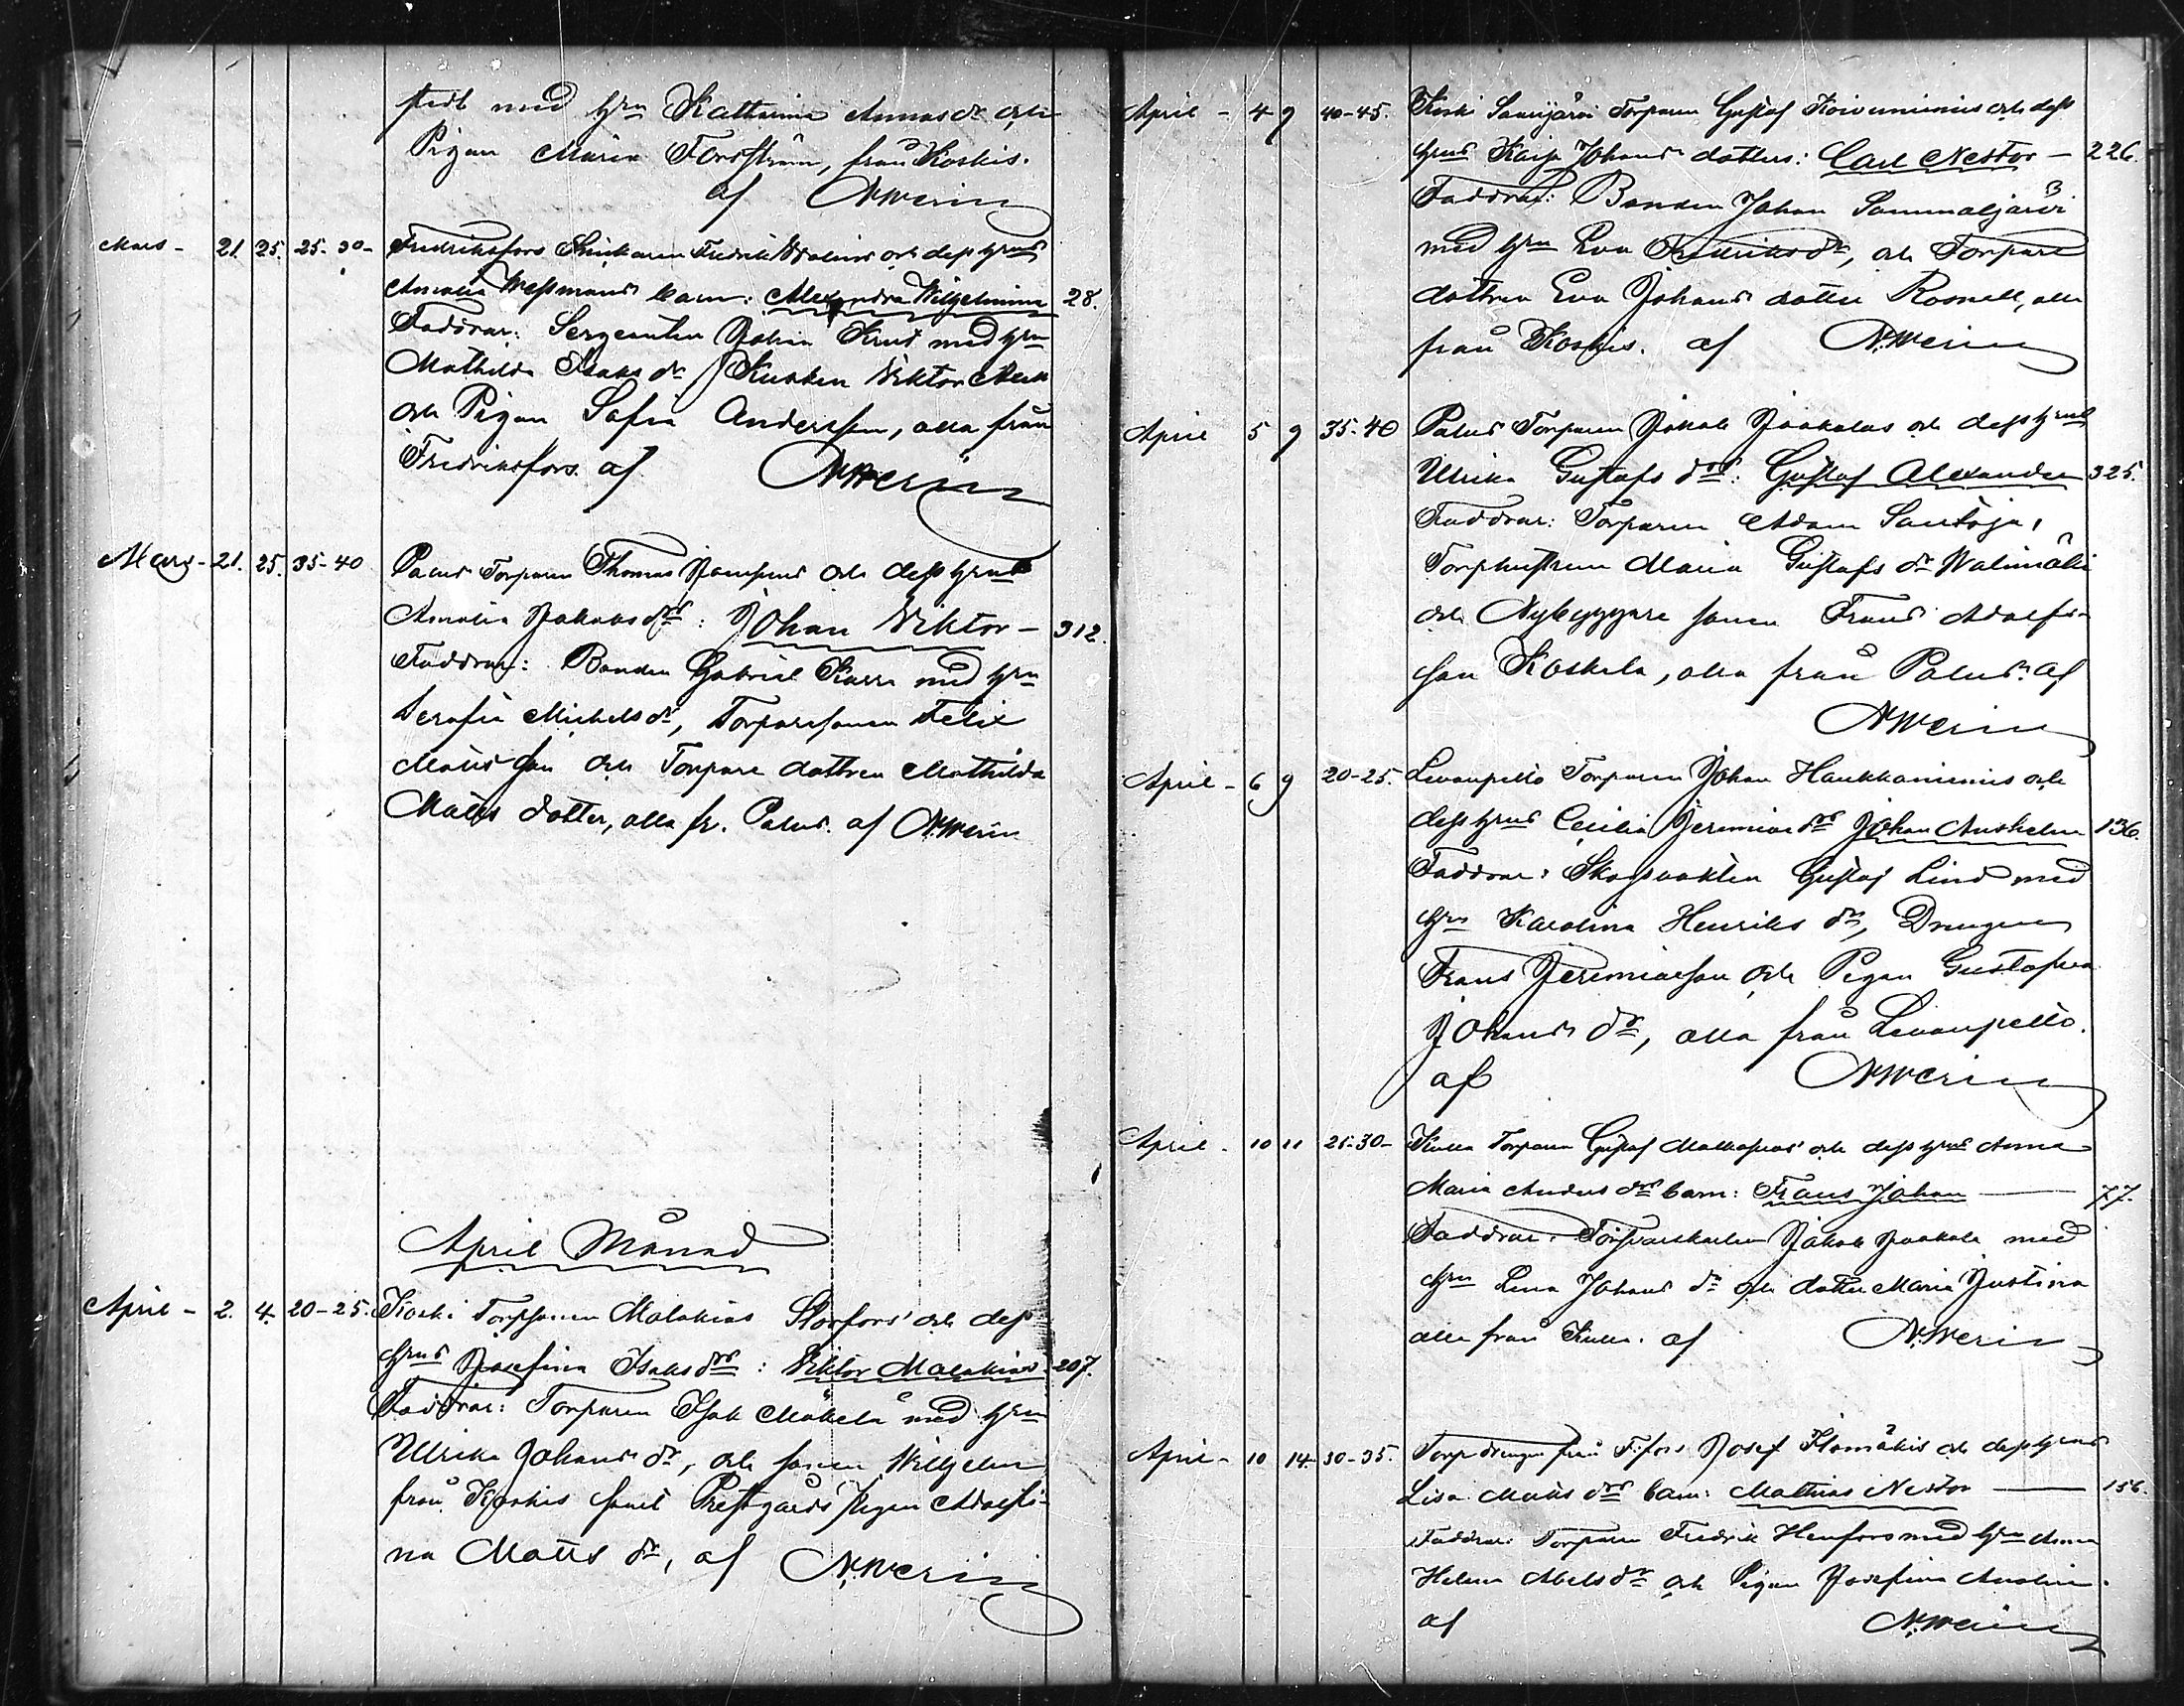 stedt med hru Katharina Annasdr och
Pigan Maria Forsström, från Koskis.
af NWerin
Mars - 21. 25. 25-30- Fredriksfors Fredrik och dess hrus
Amalia Wessmans barn: Alexandra Wilhelmina 28.
Faddrar: Sergeanten Johan Krus med hru
Mathilda Isaks dr Kusken Wiktor
och Pigan Sofia Andersson, alla från
Fredriksfors. af NWerin
Mars - 21. 25. 35-40 Palus Torparen Thomas och dess hrus
Amalia Jakobs drs: Johan Wiktor - 312.
Faddrar: Bonden Gabriel Karra med hru
Serafia Michelsdr, Torparesonen Felix
Matts son och Torpare dottren Mathilda
Matts dotter, alla fr. Palus. af NWerin
April Månad
April - 2. 4. 20-25. Koski Torpsonen Malakias Storfors' och dess
hrus Josefina Isaks drs: Wiktor Malakias 207.
Faddrar: Torparen Isak Mäkelä med hru
Ulrika Johans dr, och sonen Wilhelm
från Koskis samt Prestgårds pigan Adolfi-
na Matts dr, af N.Werin
April - 4 9 40-45. Koski Saarijärvi Torparen Gustaf Koivuniemis och dess
hrus Kaisa Johans dotters: Carl Nestor - 226.
Faddrar: Bonden Johan Sammaljärvi
med hru Eva Fredriksdr, och Torpare
dottren Eva Johans dotter Rosnell, alla
från Koskis. af N.Werin
April 5 9 35-40 Palus Torparen Jakob Jaakolas och dess hrus
Ulrika Gustafs drs: Gustaf Alexander 325.
Faddrar: Torparen Adam Santoja,
Torphustrun Maria Gustafs dr Walimäki
och Nybyggare sonen Frans Adolfs-
son Koskela, alla från Palus. af
NWerin
April - 6 9 20-25. Levanpelto Torparen Johan Haukkaniemis och
dess hrus Cecilia Jeremias drs Johan Anshelm 136.
Faddrar: Skogsvakten Gustaf Lind med
hru Karolina Henriks dr, Drengen
Frans Jeremiasson och Pigan Gustafva
Johans dr, alla från Levanpelto.
af NWerin
April - 10 11 25-30- Kulla Torparen Gustaf och dess hrus Anna
Maria Anders drs barn: Frans Johan - 77.
Faddrar: Jakob Jaakola med
hru Lena Johans dr och dotter Maria Justina
alla från Kulla. af N.Werin
April - 10 14. 30-35. Torpdrengen från Josef Ilomäkis och dess hrus
Lisa Matts drs barn: Mathias Nestor - 156.
Faddrar: Torparen Fredrik Henfors med hru Anna
Helena Abels dr och Pigan Josefina
af N.Werin